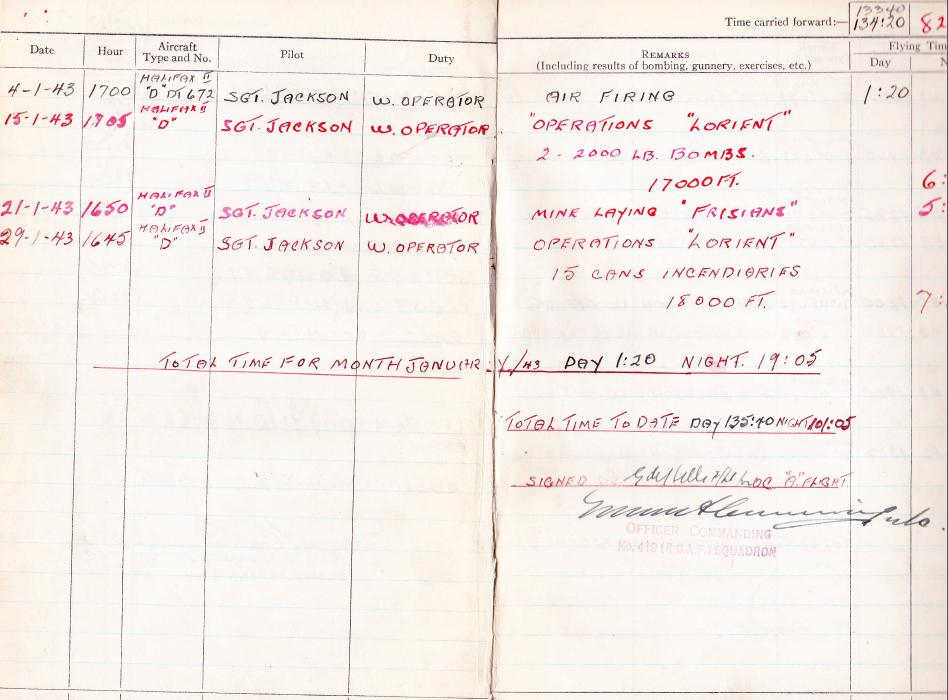 Time carried forward:— 13340
134:20 82
Date Hour Aircraft Type and No. Pilot Duty REMARKS (Including results of bombing, gunnery, exercises, etc.) Flying Tim
Day N
4-1-43 1700 HALIFAX II "D" DT672 SGT. JACKSON W. OPERATOR AIR FIRING 1:20
15-1-43 1705 HALIFAX II "D" SGT. JACKSON W. OPERATOR "OPERATIONS "LORIENT"
2-2000 LB. BOMBS.
17000 FT. 6:
21-1-43 1650 HALIFAX II "D" SGT. JACKSON W. OPERATOR MINE LAYING "FRISIANS" 5:
29-1-43 1645 HALIFAX II "D" SGT. JACKSON W. OPERATOR OPERATIONS "LORIENT"
15 CANS INCENDIARIES
18000 FT. 7:
TOTAL TIME FOR MONTH JANUARY/43 DAY 1:20 NIGHT. 19:05
TOTAL TIME TO DATE DAY 135:40 NIGHT 101:05
SIGNED OC "A" FLIGHT
OFFICER COMMANDING
No. 419 (R.C.A.F.) SQUADRON